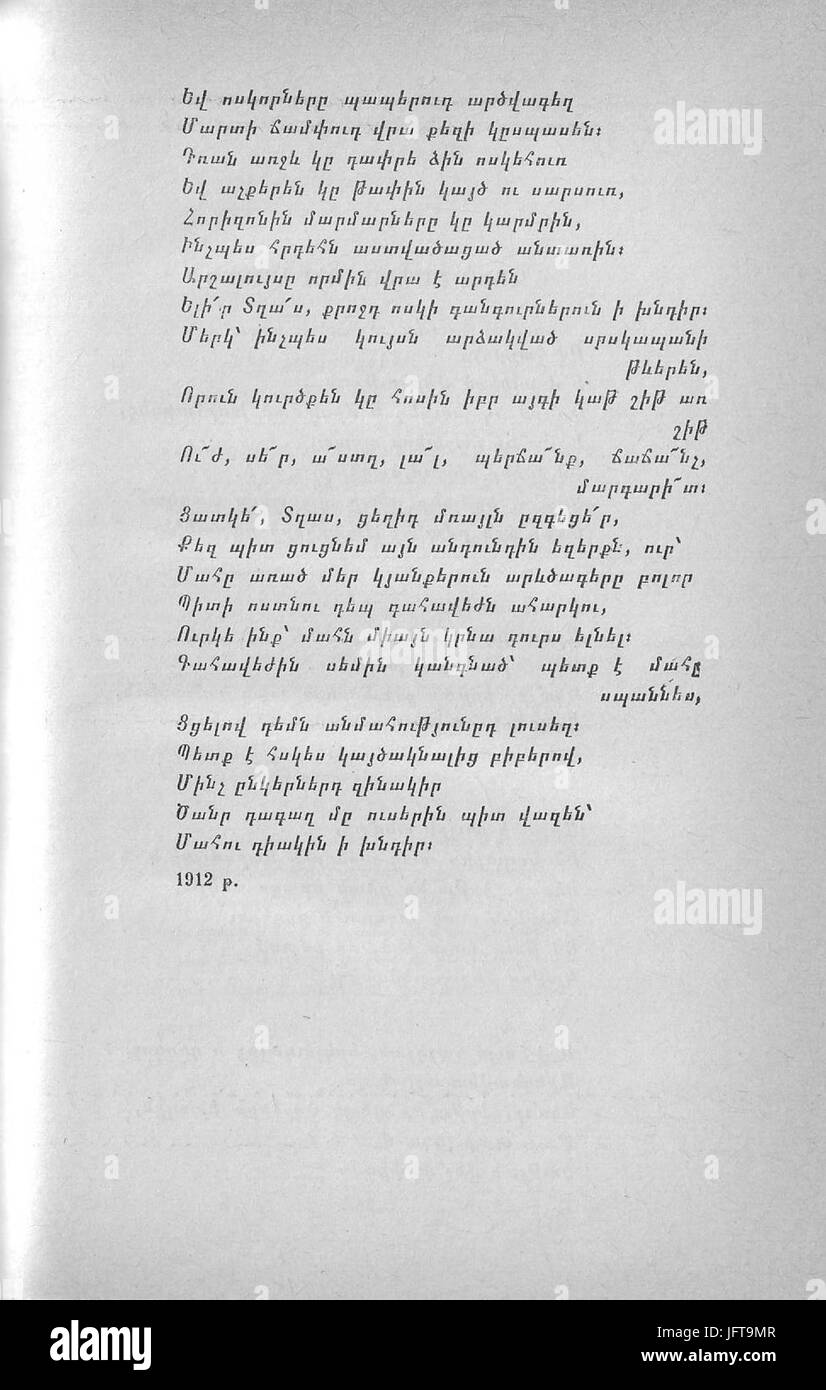 Եվ ոսկորները պապերուդ արծվագեղ
Մարտի ճամփուդ վրա քեզի կըսպասեն։
Դռան առջև կը դափրե ձին ոսկեհուռ
Եվ աչքերեն կը թափին կայծ ու սարսուռ,
Հորիզոնին մարմարները կը կարմրին,
Ինչպես հրդեհն աստվածացած անտառին։
Արշալույսը որմին վրա է արդեն
Ելի՛ր Տղա՛ս, քրոջդ ոսկի գանգուրներուն ի խնդիր։
Մերկ՝ ինչպես կույսն արձակված սրսկապանի
թևերեն,
Որուն կուրծքեն կը հոսին իբր այգի կաթ շիթ առ
շիթ
Ու՜ժ, սե՜ր, ա՜ստղ, լա՜լ, պերճա՜նք, ճաճա՜նչ,
մարդարի՜տ։
Ցատկե՛, Տղաս, ցեղիդ մռայլն ըզգեցե՛ր,
Քեզ պիտ ցուցնեմ այն անդունդին եզերքն, ուր՝
Մահը առած մեր կյանքերուն արևծագերը բոլոր
Պիտի ոստնու դեպ գահավեժն ահարկու,
Ուրկե ինք՝ մահն միայն կրնա դուրս ելնել։
Գահավեժին սեմին կանգնած՝ պետք է մահը
սպաննես,
Ցցելով դեմն անմահությունըդ լուսեղ։
Պետք է հսկես կայծակնալից բիբերով,
Մինչ ընկերներդ զինակիր
Ծանր դագաղ մը ուսերին պիտ վազեն՝
Մահու դիակին ի խնդիր։
1912 թ.
alamy
alamy
alamy
alamy
alamy
Image ID: JFT9MR
www.alamy.com